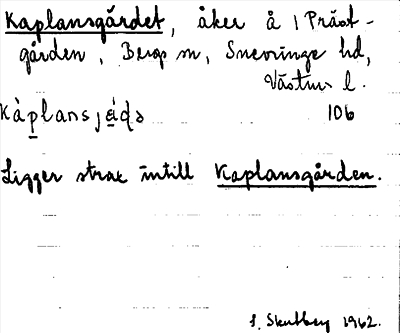 Kaplansgärdet, åker å 1 Präst-
gården, Bergs sn, Snevringe hd,
Västm. l.
106
Ligger strax intill Kaplansgården.
1962.